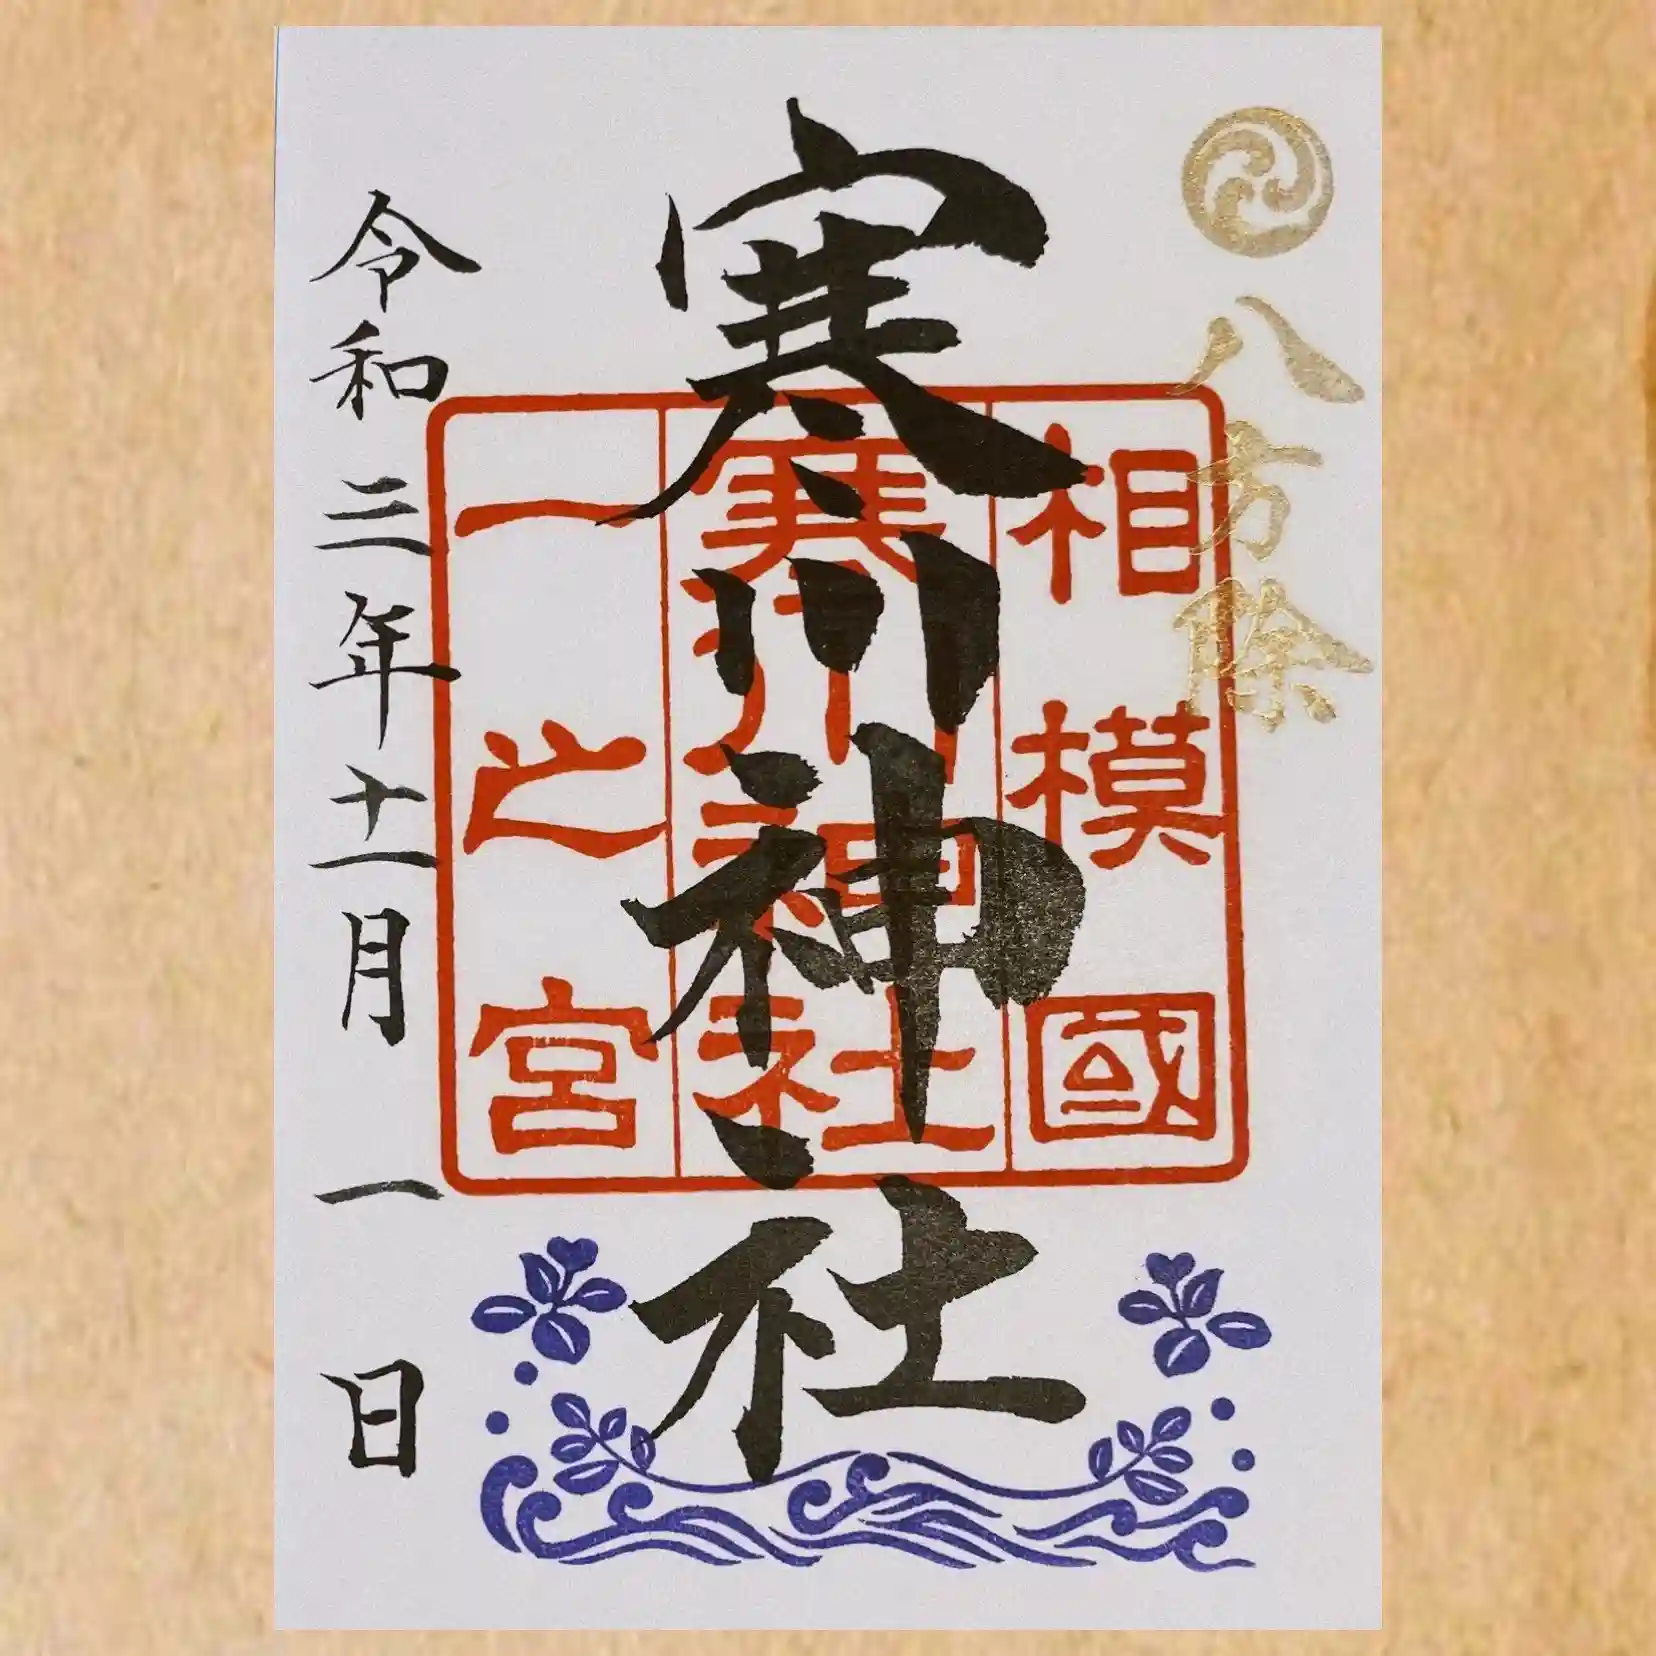 八方除
相模國
寒川神社
一之宮
寒川神社
令和三年十一月一日